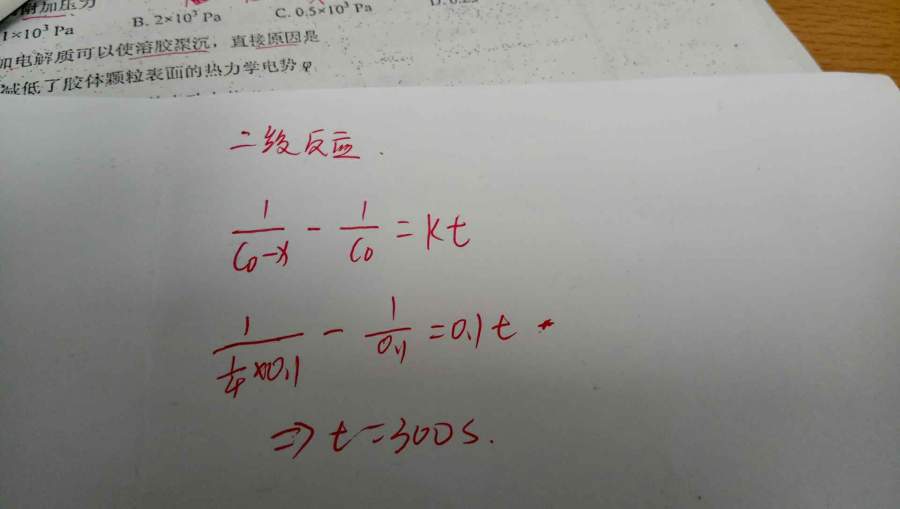 附加压力
1×10³ Pa B. 2×10³ Pa C. 0.5×10³ Pa
加电解质可以使溶胶聚沉，直接原因是
减低了胶体颗粒表面的热力学电势φ
二级反应.
1/(C₀-x) - 1/C₀ = kt
1/(1/4×0.1) - 1/0.1 = 0.1t
⇒ t=300s.